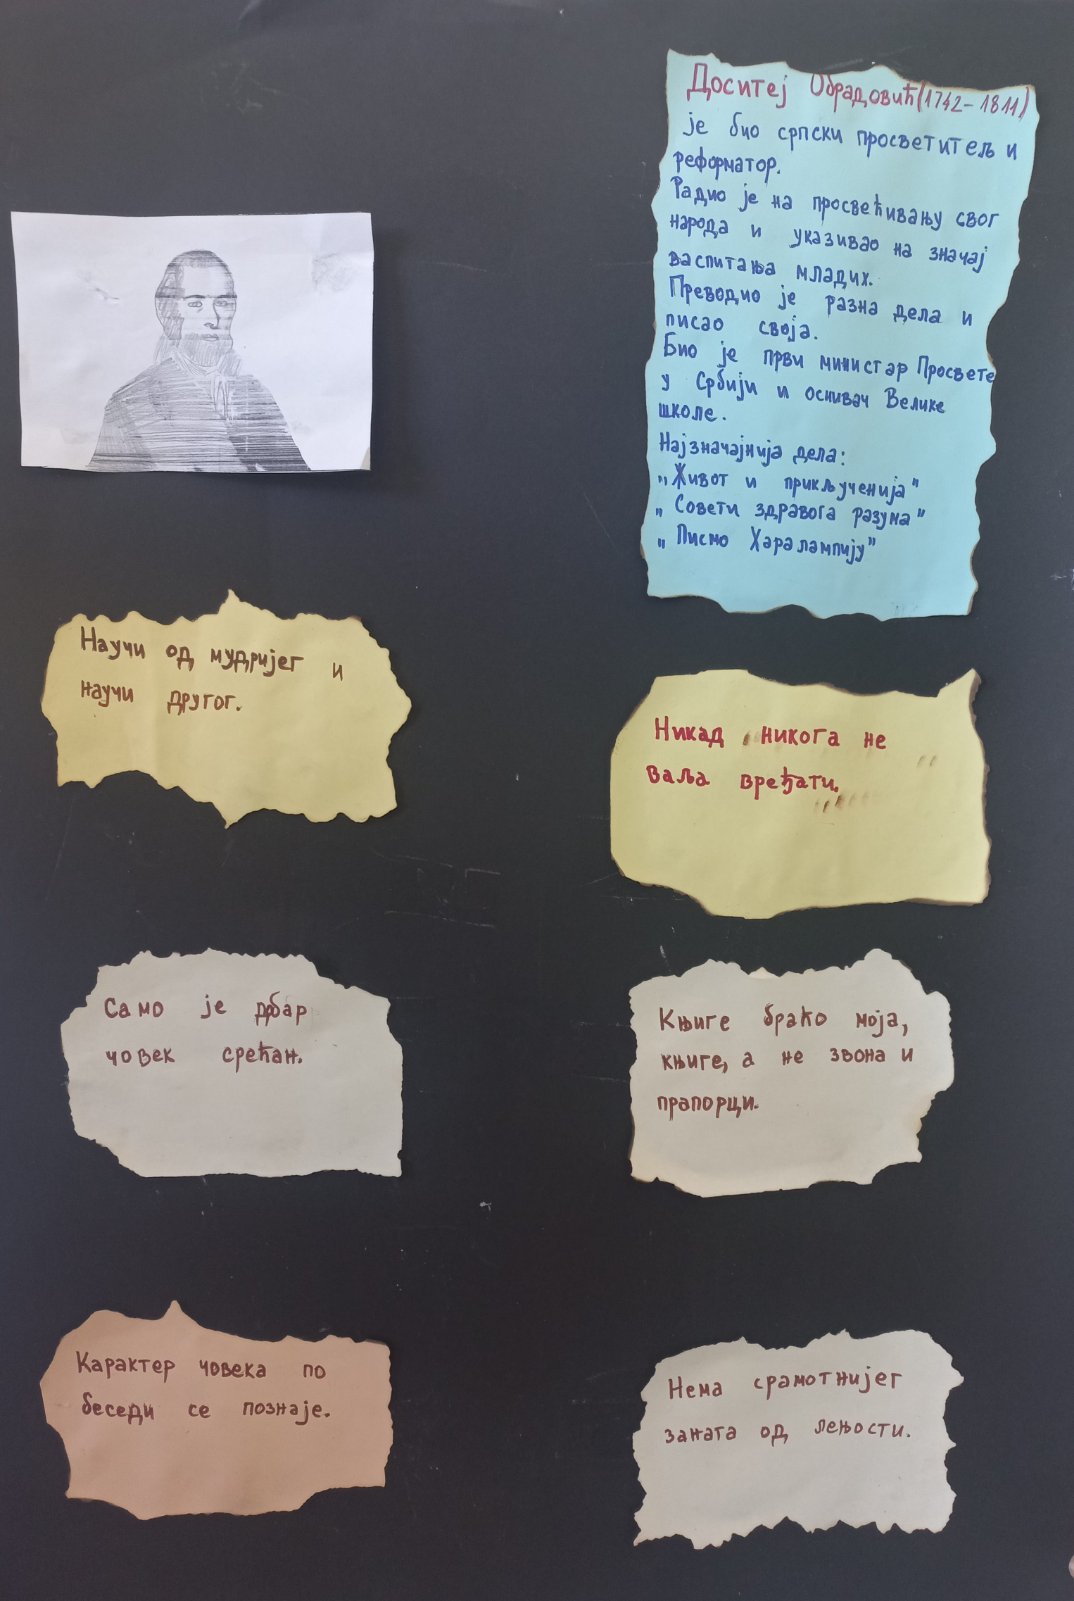 Доситеј Обрадовић (1742-1811)
је био српски просветитељ и
реформатор.
Радио је на просвећивању свог
народа и указивао на значај
васпитања младих.
Преводио је разна дела и
писао своја.
Био је први министар Просвете
у Србији и оснивач Велике
школе.
Најзначајнија дела:
„Живот и прикљученија"
„Совети здравога разума"
„Писмо Харалампију"
Научи од мудријег и
научи другог.
Никад никога не
ваља вређати.
Само је добар
човек срећан.
Књиге браћо моја,
књиге, а не звона и
прапорци.
Карактер човека по
беседи се познаје.
Нема срамотнијег
заната од лењости.